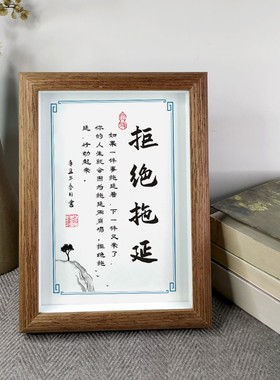 拒绝拖延
如果一件事拖延着,下一件又来了
你的人生就会因为拖延而崩塌,拒绝拖
延,行动起来。